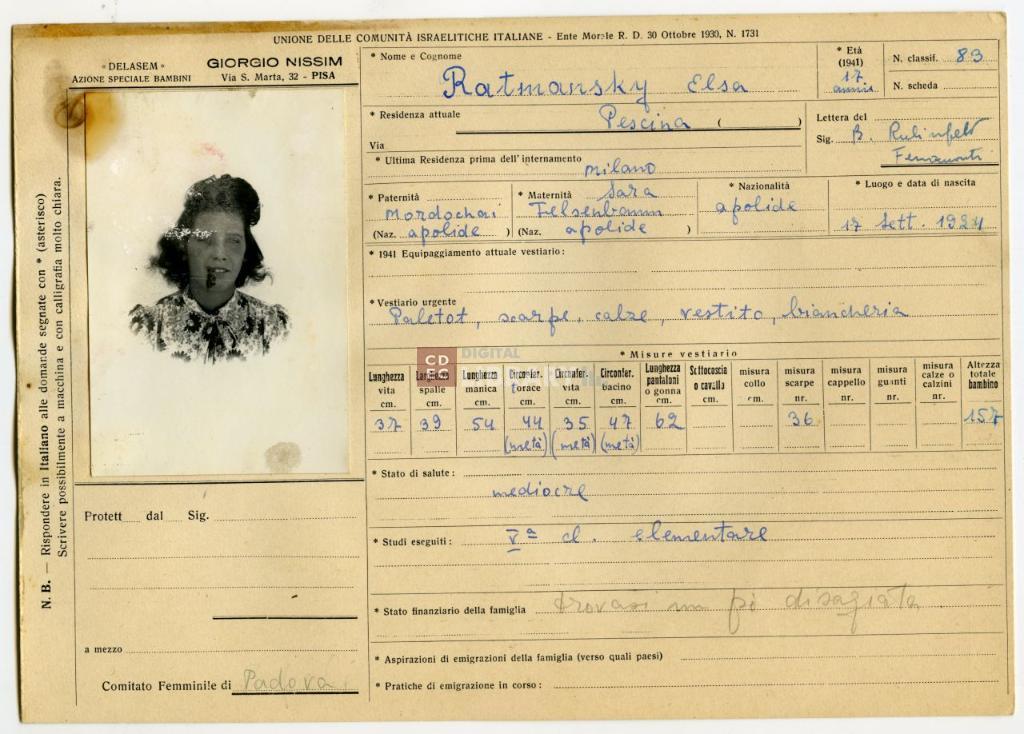 UNIONE DELLE COMUNITÀ ISRAELITICHE ITALIANE - Ente Morale R. D. 30 Ottobre 1930, N. 1731
« DELASEM »
AZIONE SPECIALE BAMBINI
GIORGIO NISSIM
Via S. Marta, 32 - PISA
* Nome e Cognome
Ratmansky Elsa
* Età
(1941)
17
anni
N. classif. 83
N. scheda
* Residenza attuale Pescina ( )
Via
Lettera del
Sig. B. Rubinfeld
* Ultima Residenza prima dell'internamento
Milano
* Paternità
Mordochai
(Naz. apolide )
* Maternità Sara
Felsenbaum
(Naz. apolide )
* Nazionalità
apolide
* Luogo e data di nascita
17 Sett. 1924
* 1941 Equipaggiamento attuale vestiario:
* Vestiario urgente
Paletot, scarpe, calze, vestito, biancheria
* Misure vestiario
Lunghezza vita cm. 37
Larghezza spalle cm. 39
Lunghezza manica cm. 54
Circonfer. torace cm. 44 (metà)
Circonfer. vita cm. 35 (metà)
Circonfer. bacino cm. 47 (metà)
Lunghezza pantaloni o gonna cm. 62
Sottocoscia o cavallo cm.
misura collo cm.
misura scarpe nr. 36
misura cappello nr.
misura guanti nr.
misura calze o calzini nr.
Altezza totale bambino 157
* Stato di salute:
mediocre
* Studi eseguiti: Vª cl. elementare
* Stato finanziario della famiglia trovasi un pò disagiata
* Aspirazioni di emigrazioni della famiglia (verso quali paesi)
* Pratiche di emigrazione in corso:
Protett dal Sig.
a mezzo
Comitato Femminile di Padova
N. B. — Rispondere in Italiano alle domande segnate con * (asterisco)
Scrivere possibilmente a macchina e con calligrafia molto chiara.
CD
EC
DIGITAL